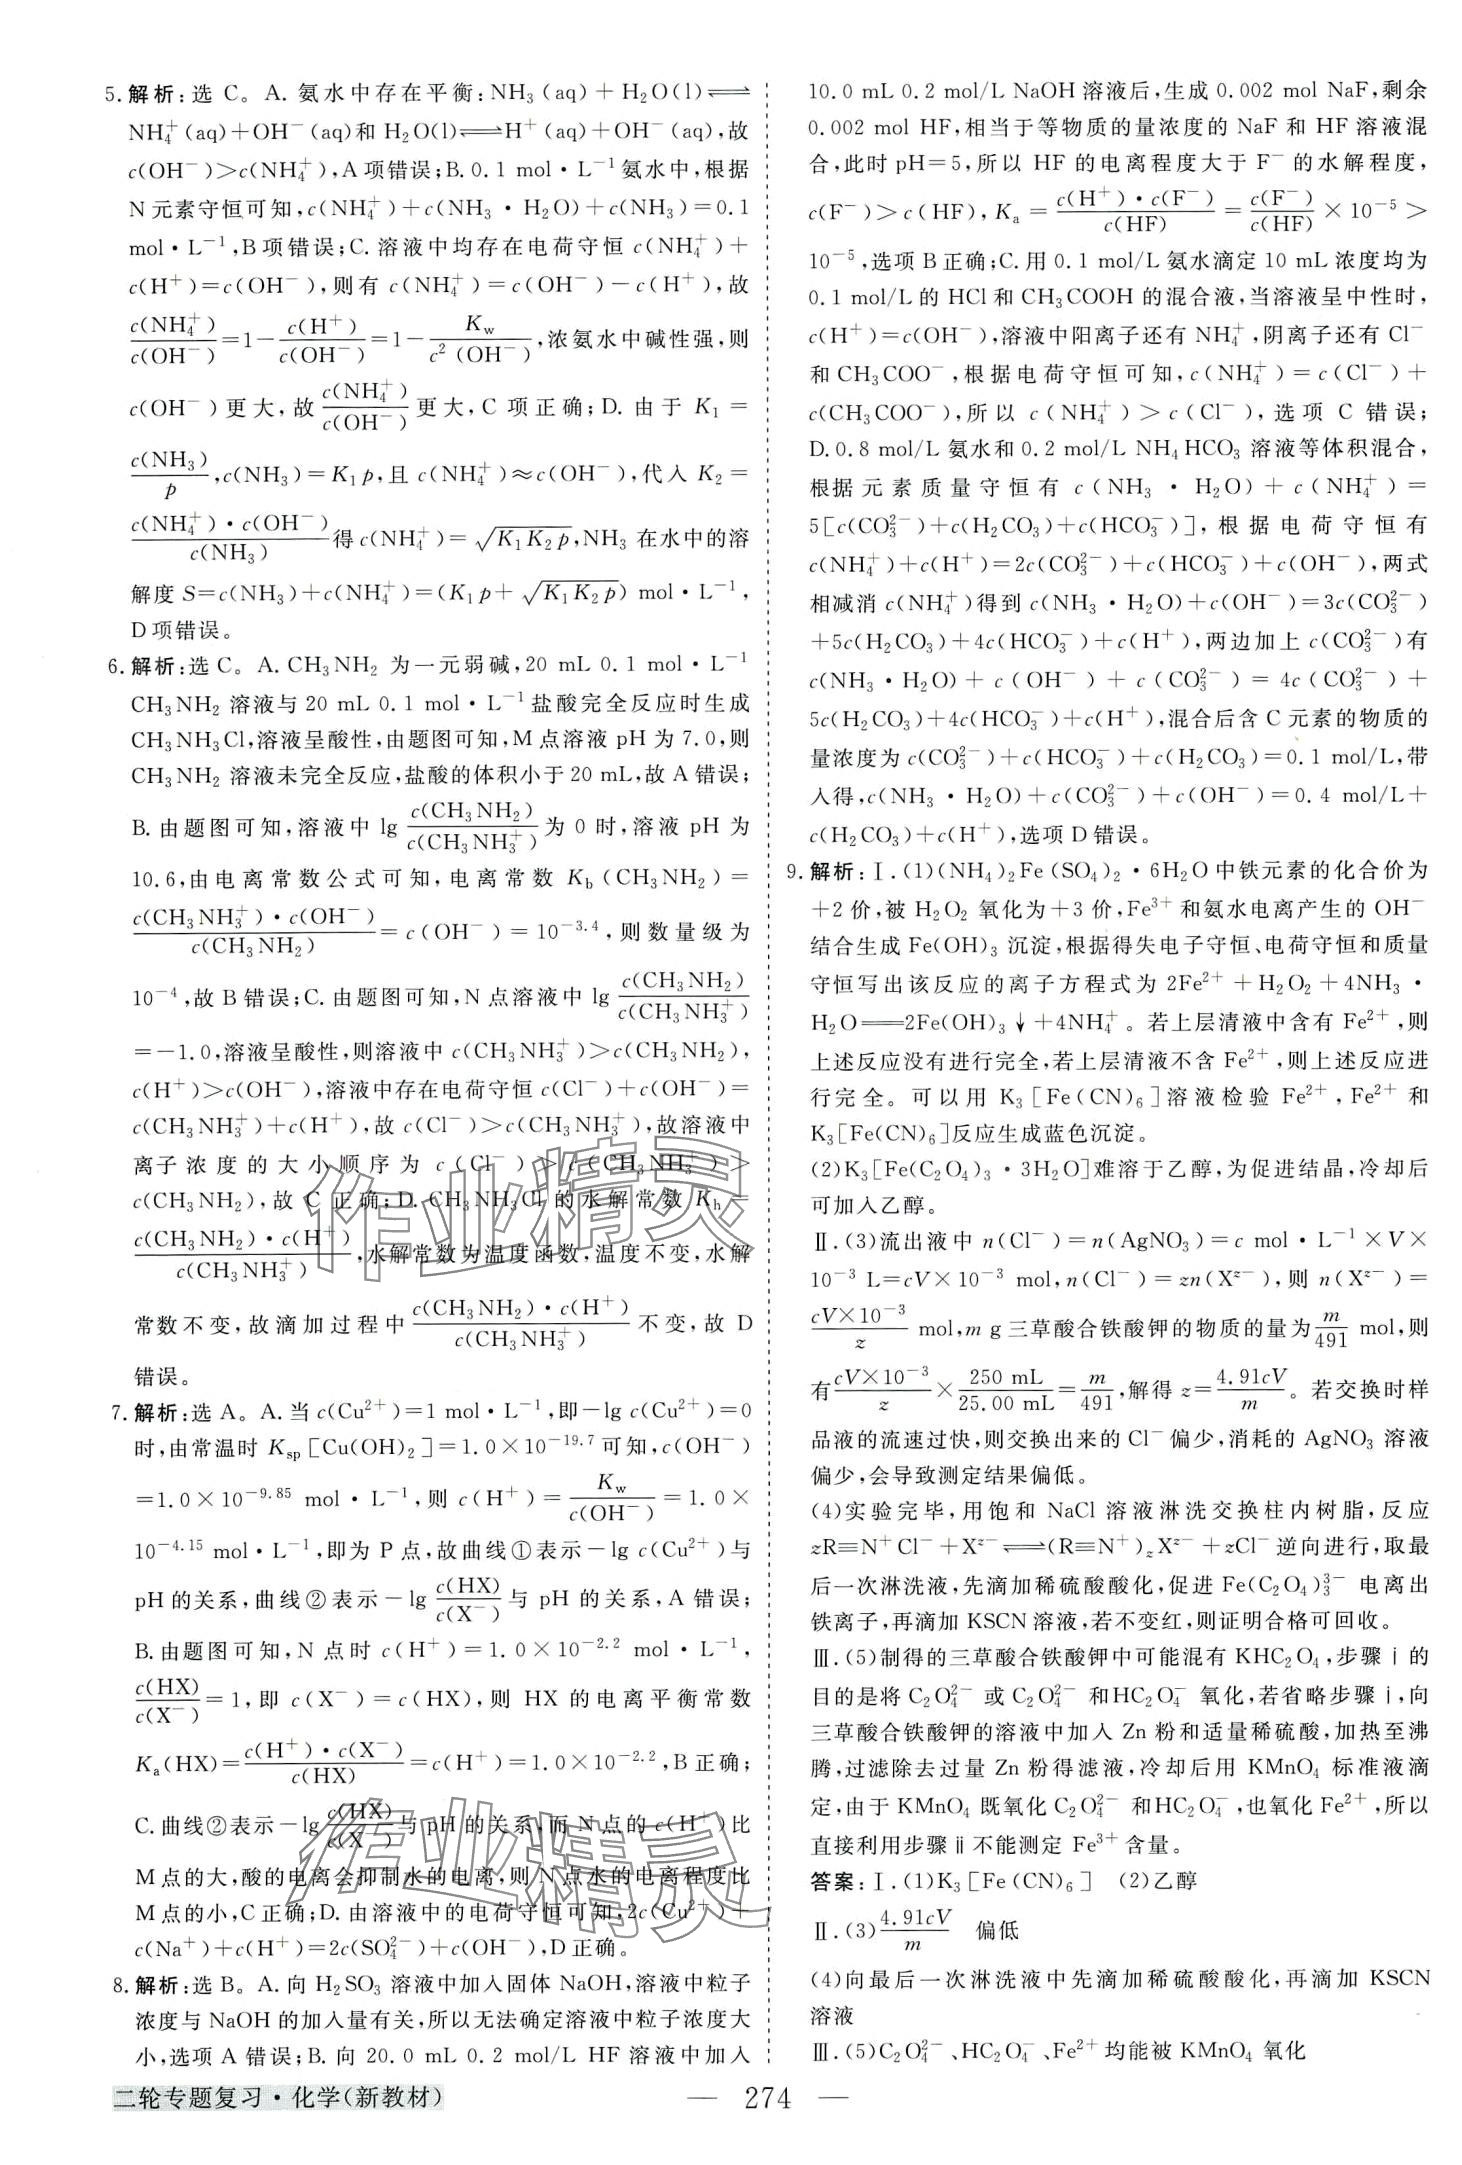 5.解析:选 C。A. 氨水中存在平衡:NH₃(aq)+H₂O(l)⇌
NH₄⁺(aq)+OH⁻(aq)和 H₂O(l)⇌H⁺(aq)+OH⁻(aq),故
c(OH⁻)>c(NH₄⁺),A 项错误;B. 0.1 mol·L⁻¹氨水中,根据
N 元素守恒可知,c(NH₄⁺)+c(NH₃·H₂O)+c(NH₃)=0.1
mol·L⁻¹,B项错误;C. 溶液中均存在电荷守恒 c(NH₄⁺)+
c(H⁺)=c(OH⁻),则有 c(NH₄⁺)=c(OH⁻)-c(H⁺),故
c(NH₄⁺)/c(OH⁻)=1-c(H⁺)/c(OH⁻)=1-Kw/c²(OH⁻),浓氨水中碱性强,则
c(OH⁻)更大,故 c(NH₄⁺)/c(OH⁻) 更大,C 项正确;D. 由于 K₁=
c(NH₃)/p,c(NH₃)=K₁p,且 c(NH₄⁺)≈c(OH⁻),代入 K₂=
c(NH₄⁺)·c(OH⁻)/c(NH₃) 得 c(NH₄⁺)=√(K₁K₂p),NH₃ 在水中的溶
解度 S=c(NH₃)+c(NH₄⁺)=(K₁p+√(K₁K₂p)) mol·L⁻¹,
D 项错误。
6.解析:选 C。A. CH₃NH₂ 为一元弱碱,20 mL 0.1 mol·L⁻¹
CH₃NH₂ 溶液与 20 mL 0.1 mol·L⁻¹盐酸完全反应时生成
CH₃NH₃Cl,溶液呈酸性,由题图可知,M 点溶液 pH 为 7.0,则
CH₃NH₂ 溶液未完全反应,盐酸的体积小于 20 mL,故 A 错误;
B. 由题图可知,溶液中 lg c(CH₃NH₂)/c(CH₃NH₃⁺) 为 0 时,溶液 pH 为
10.6,由电离常数公式可知,电离常数 Kb(CH₃NH₂)=
c(CH₃NH₃⁺)·c(OH⁻)/c(CH₃NH₂)=c(OH⁻)=10⁻³·⁴,则数量级为
10⁻⁴,故 B 错误;C. 由题图可知,N 点溶液中 lg c(CH₃NH₂)/c(CH₃NH₃⁺)
=-1.0,溶液呈酸性,则溶液中 c(CH₃NH₃⁺)>c(CH₃NH₂),
c(H⁺)>c(OH⁻),溶液中存在电荷守恒 c(Cl⁻)+c(OH⁻)=
c(CH₃NH₃⁺)+c(H⁺),故 c(Cl⁻)>c(CH₃NH₃⁺),故溶液中
离子浓度的大小顺序为 c(Cl⁻)>c(CH₃NH₃⁺)>
c(CH₃NH₂),故 C 正确;D. CH₃NH₃Cl 的水解常数 Kh=
c(CH₃NH₂)·c(H⁺)/c(CH₃NH₃⁺),水解常数为温度函数,温度不变,水解
常数不变,故滴加过程中 c(CH₃NH₂)·c(H⁺)/c(CH₃NH₃⁺) 不变,故 D
错误。
7.解析:选 A。A. 当 c(Cu²⁺)=1 mol·L⁻¹,即-lg c(Cu²⁺)=0
时,由常温时 Ksp[Cu(OH)₂]=1.0×10⁻¹⁹·⁷可知,c(OH⁻)
=1.0×10⁻⁹·⁸⁵ mol·L⁻¹,则 c(H⁺)=Kw/c(OH⁻)=1.0×
10⁻⁴·¹⁵ mol·L⁻¹,即为 P 点,故曲线①表示-lg c(Cu²⁺)与
pH 的关系,曲线②表示-lg c(HX)/c(X⁻) 与 pH 的关系,A 错误;
B. 由题图可知,N 点时 c(H⁺)=1.0×10⁻²·² mol·L⁻¹,
c(HX)/c(X⁻)=1,即 c(X⁻)=c(HX),则 HX 的电离平衡常数
Ka(HX)=c(H⁺)·c(X⁻)/c(HX)=c(H⁺)=1.0×10⁻²·²,B 正确;
C. 曲线②表示-lg c(HX)/c(X⁻) 与 pH 的关系,而 N 点的 c(H⁺)比
M 点的大,酸的电离会抑制水的电离,则 N 点水的电离程度比
M 点的小,C 正确;D. 由溶液中的电荷守恒可知,2c(Cu²⁺)+
c(Na⁺)+c(H⁺)=2c(SO₄²⁻)+c(OH⁻),D 正确。
8.解析:选 B。A. 向 H₂SO₃ 溶液中加入固体 NaOH,溶液中粒子
浓度与 NaOH 的加入量有关,所以无法确定溶液中粒子浓度大
小,选项 A 错误;B. 向 20.0 mL 0.2 mol/L HF 溶液中加入
10.0 mL 0.2 mol/L NaOH 溶液后,生成 0.002 mol NaF,剩余
0.002 mol HF,相当于等物质的量浓度的 NaF 和 HF 溶液混
合,此时 pH=5,所以 HF 的电离程度大于 F⁻ 的水解程度,
c(F⁻)>c(HF),Ka=c(H⁺)·c(F⁻)/c(HF)=c(F⁻)/c(HF)×10⁻⁵>
10⁻⁵,选项 B 正确;C. 用 0.1 mol/L 氨水滴定 10 mL 浓度均为
0.1 mol/L 的 HCl 和 CH₃COOH 的混合液,当溶液呈中性时,
c(H⁺)=c(OH⁻),溶液中阳离子还有 NH₄⁺,阴离子还有 Cl⁻
和 CH₃COO⁻,根据电荷守恒可知,c(NH₄⁺)=c(Cl⁻)+
c(CH₃COO⁻),所以 c(NH₄⁺)>c(Cl⁻),选项 C 错误;
D. 0.8 mol/L 氨水和 0.2 mol/L NH₄HCO₃ 溶液等体积混合,
根据元素质量守恒有 c(NH₃·H₂O)+c(NH₄⁺)=
5[c(CO₃²⁻)+c(H₂CO₃)+c(HCO₃⁻)],根据电荷守恒有
c(NH₄⁺)+c(H⁺)=2c(CO₃²⁻)+c(HCO₃⁻)+c(OH⁻),两式
相减消 c(NH₄⁺)得到 c(NH₃·H₂O)+c(OH⁻)=3c(CO₃²⁻)
+5c(H₂CO₃)+4c(HCO₃⁻)+c(H⁺),两边加上 c(CO₃²⁻)有
c(NH₃·H₂O)+c(OH⁻)+c(CO₃²⁻)=4c(CO₃²⁻)+
5c(H₂CO₃)+4c(HCO₃⁻)+c(H⁺),混合后含 C 元素的物质的
量浓度为 c(CO₃²⁻)+c(HCO₃⁻)+c(H₂CO₃)=0.1 mol/L,带
入得,c(NH₃·H₂O)+c(CO₃²⁻)+c(OH⁻)=0.4 mol/L+
c(H₂CO₃)+c(H⁺),选项 D 错误。
9.解析:Ⅰ.(1)(NH₄)₂Fe(SO₄)₂·6H₂O 中铁元素的化合价为
+2 价,被 H₂O₂ 氧化为+3 价,Fe³⁺ 和氨水电离产生的 OH⁻
结合生成 Fe(OH)₃ 沉淀,根据得失电子守恒、电荷守恒和质量
守恒写出该反应的离子方程式为 2Fe²⁺+H₂O₂+4NH₃·
H₂O══2Fe(OH)₃↓+4NH₄⁺。若上层清液中含有 Fe²⁺,则
上述反应没有进行完全,若上层清液不含 Fe²⁺,则上述反应进
行完全。可以用 K₃[Fe(CN)₆]溶液检验 Fe²⁺,Fe²⁺ 和
K₃[Fe(CN)₆]反应生成蓝色沉淀。
(2)K₃[Fe(C₂O₄)₃·3H₂O]难溶于乙醇,为促进结晶,冷却后
可加入乙醇。
Ⅱ.(3)流出液中 n(Cl⁻)=n(AgNO₃)=c mol·L⁻¹×V×
10⁻³ L=cV×10⁻³ mol,n(Cl⁻)=zn(Xᶻ⁻),则 n(Xᶻ⁻)=
cV×10⁻³/z mol,m g 三草酸合铁酸钾的物质的量为 m/491 mol,则
有 cV×10⁻³/z×250 mL/25.00 mL=m/491,解得 z=4.91cV/m。若交换时样
品液的流速过快,则交换出来的 Cl⁻ 偏少,消耗的 AgNO₃ 溶液
偏少,会导致测定结果偏低。
(4)实验完毕,用饱和 NaCl 溶液淋洗交换柱内树脂,反应
zR≡N⁺Cl⁻+Xᶻ⁻⇌(R≡N⁺)zXᶻ⁻+zCl⁻ 逆向进行,取最
后一次淋洗液,先滴加稀硫酸酸化,促进 Fe(C₂O₄)₃³⁻ 电离出
铁离子,再滴加 KSCN 溶液,若不变红,则证明合格可回收。
Ⅲ.(5)制得的三草酸合铁酸钾中可能混有 KHC₂O₄,步骤ⅰ的
目的是将 C₂O₄²⁻ 或 C₂O₄²⁻ 和HC₂O₄⁻ 氧化,若省略步骤ⅰ,向
三草酸合铁酸钾的溶液中加入 Zn 粉和适量稀硫酸,加热至沸
腾,过滤除去过量 Zn 粉得滤液,冷却后用 KMnO₄ 标准液滴
定,由于 KMnO₄ 既氧化 C₂O₄²⁻ 和HC₂O₄⁻,也氧化 Fe²⁺,所以
直接利用步骤ⅱ不能测定 Fe³⁺ 含量。
答案:Ⅰ.(1)K₃[Fe(CN)₆] (2)乙醇
Ⅱ.(3)4.91cV/m 偏低
(4)向最后一次淋洗液中先滴加稀硫酸酸化,再滴加 KSCN
溶液
Ⅲ.(5)C₂O₄²⁻、HC₂O₄⁻、Fe²⁺均能被 KMnO₄ 氧化
作业精灵
作业精灵
二轮专题复习·化学(新教材)
— 274 —